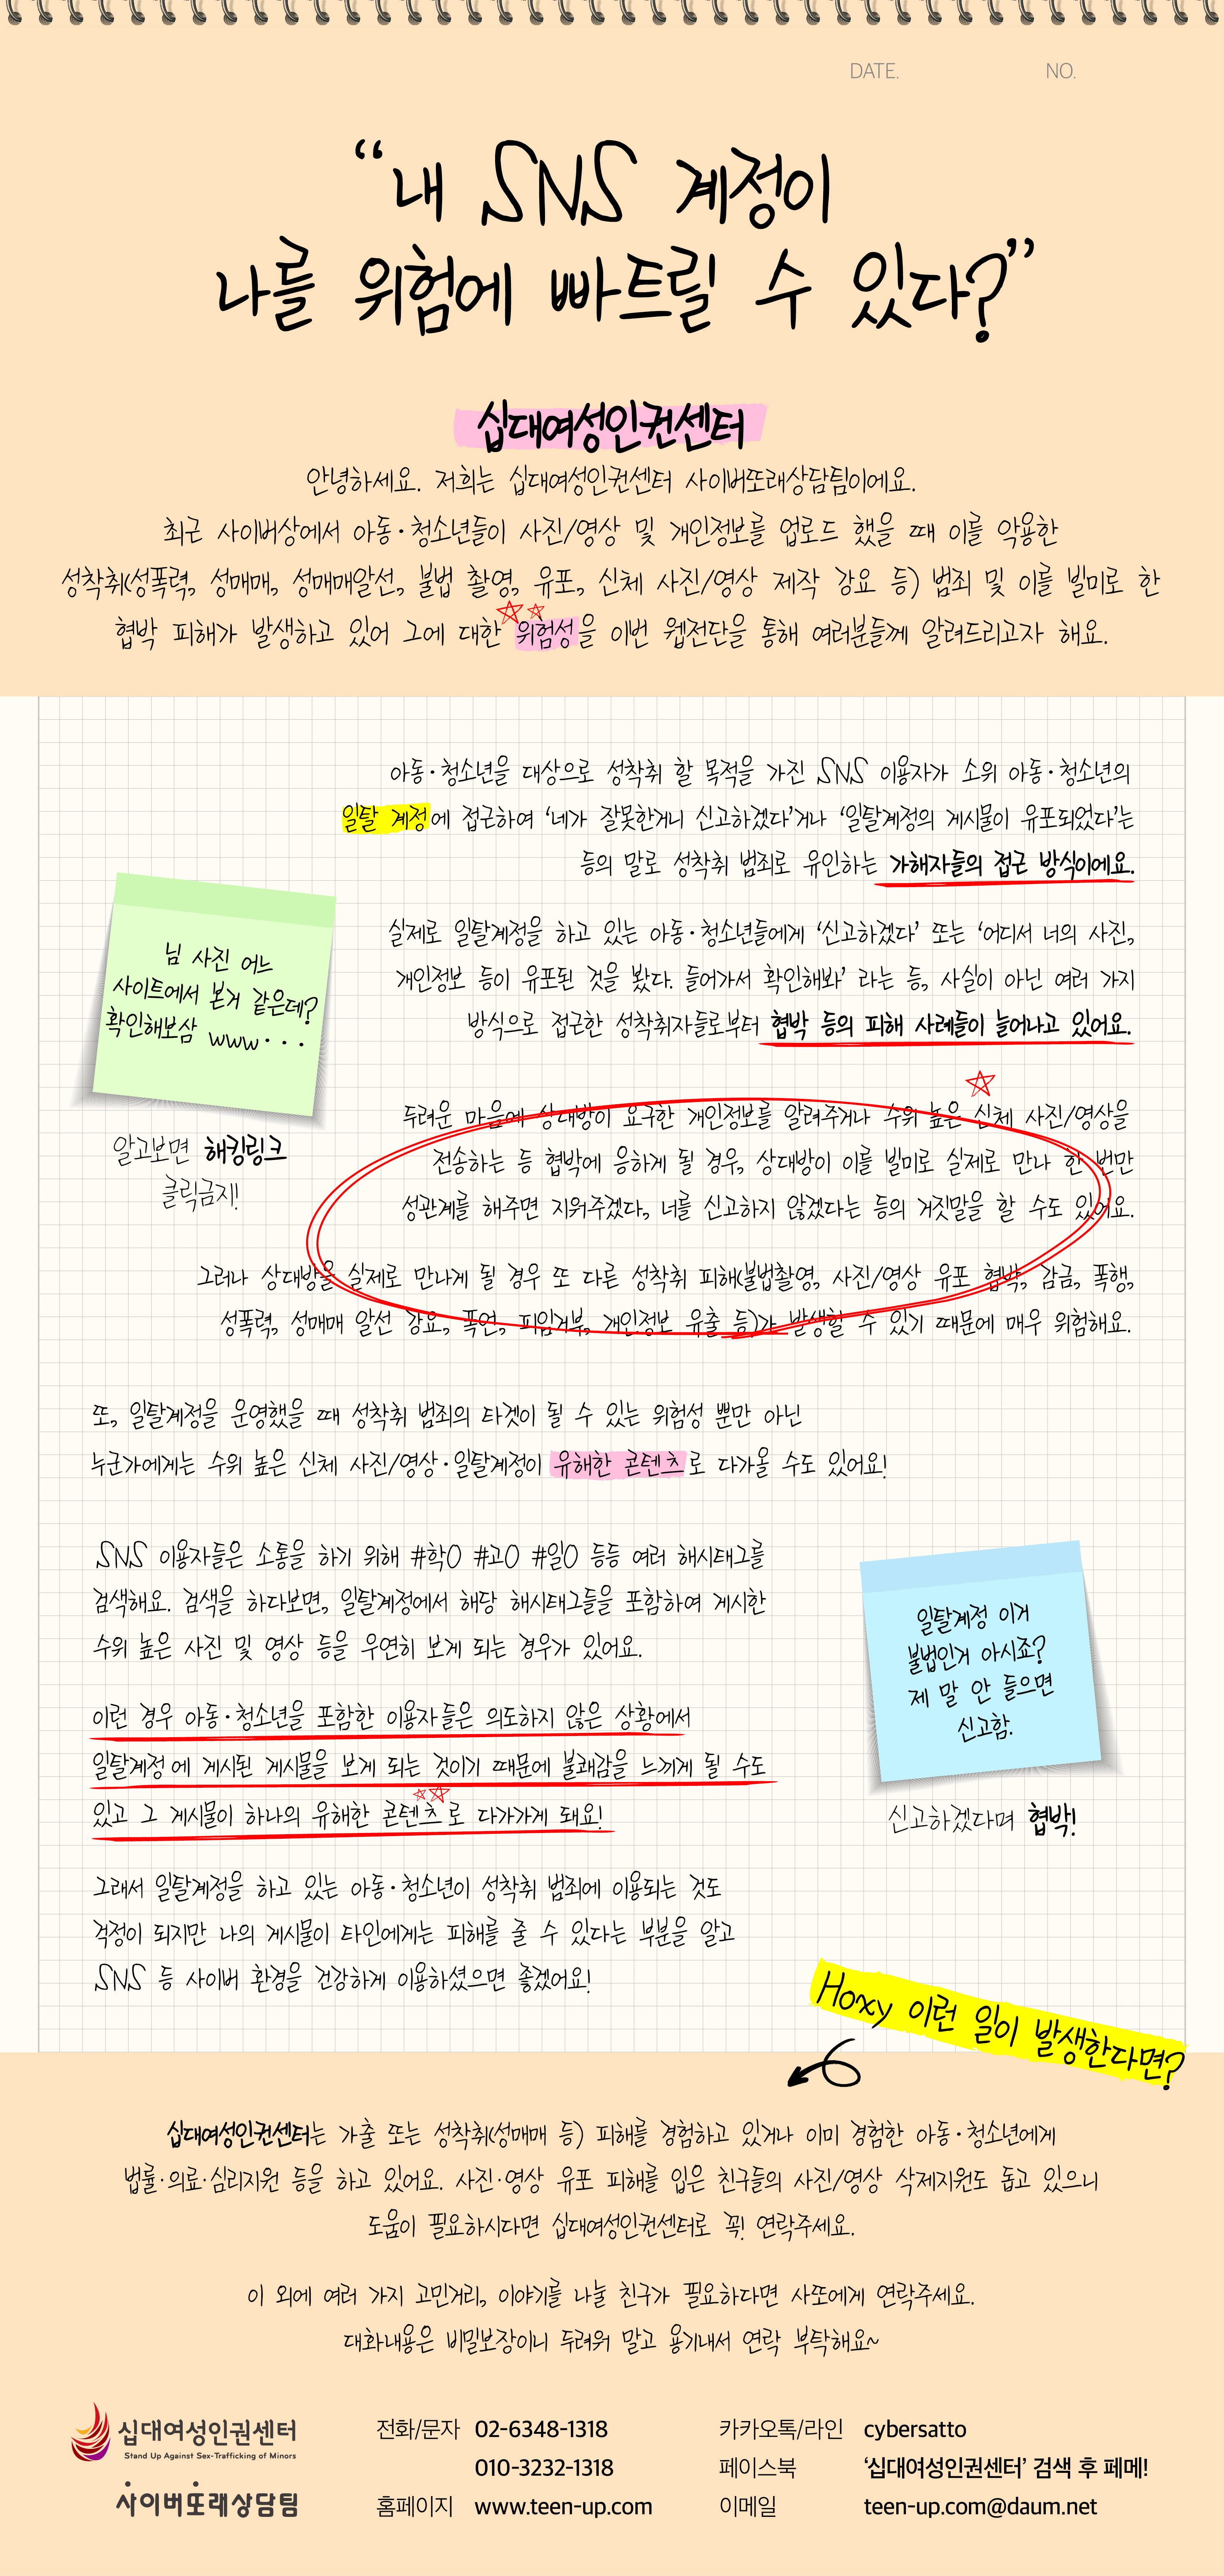 DATE. NO.
“내 SNS 계정이
나를 위험에 빠트릴 수 있다?”
십대여성인권센터
안녕하세요. 저희는 십대여성인권센터 사이버또래상담팀이에요.
최근 사이버상에서 아동·청소년들이 사진/영상 및 개인정보를 업로드 했을 때 이를 악용한
성착취(성폭력, 성매매, 성매매알선, 불법 촬영, 유포, 신체 사진/영상 제작 강요 등) 범죄 및 이를 빌미로 한
협박 피해가 발생하고 있어 그에 대한 위험성을 이번 웹전단을 통해 여러분들께 알려드리고자 해요.
아동·청소년을 대상으로 성착취 할 목적을 가진 SNS 이용자가 소위 아동·청소년의
일탈 계정에 접근하여 ‘네가 잘못한거니 신고하겠다’거나 ‘일탈계정의 게시물이 유포되었다’는
등의 말로 성착취 범죄로 유인하는 가해자들의 접근 방식이에요.
실제로 일탈계정을 하고 있는 아동·청소년들에게 ‘신고하겠다’ 또는 ‘어디서 너의 사진,
개인정보 등이 유포된 것을 봤다. 들어가서 확인해봐’ 라는 등, 사실이 아닌 여러 가지
방식으로 접근한 성착취자들로부터 협박 등의 피해 사례들이 늘어나고 있어요.
님 사진 어느
사이트에서 본거 같은데?
확인해보삼 www···
알고보면 해킹링크
클릭금지!
두려운 마음에 상대방이 요구한 개인정보를 알려주거나 수위 높은 신체 사진/영상을
전송하는 등 협박에 응하게 될 경우, 상대방이 이를 빌미로 실제로 만나 한 번만
성관계를 해주면 지워주겠다, 너를 신고하지 않겠다는 등의 거짓말을 할 수도 있어요.
그러나 상대방을 실제로 만나게 될 경우 또 다른 성착취 피해(불법촬영, 사진/영상 유포 협박, 감금, 폭행,
성폭력, 성매매 알선 강요, 폭언, 피임거부, 개인정보 유출 등)가 발생할 수 있기 때문에 매우 위험해요.
또, 일탈계정을 운영했을 때 성착취 범죄의 타겟이 될 수 있는 위험성 뿐만 아닌
누군가에게는 수위 높은 신체 사진/영상·일탈계정이 유해한 콘텐츠로 다가올 수도 있어요!
SNS 이용자들은 소통을 하기 위해 #학O #고O #일O 등등 여러 해시태그를
검색해요. 검색을 하다보면, 일탈계정에서 해당 해시태그들을 포함하여 게시한
수위 높은 사진 및 영상 등을 우연히 보게 되는 경우가 있어요.
이런 경우 아동·청소년을 포함한 이용자들은 의도하지 않은 상황에서
일탈계정에 게시된 게시물을 보게 되는 것이기 때문에 불쾌감을 느끼게 될 수도
있고 그 게시물이 하나의 유해한 콘텐츠로 다가가게 돼요!
일탈계정 이거
불법인거 아시죠?
제 말 안 들으면
신고함.
신고하겠다며 협박!
그래서 일탈계정을 하고 있는 아동·청소년이 성착취 범죄에 이용되는 것도
걱정이 되지만 나의 게시물이 타인에게는 피해를 줄 수 있다는 부분을 알고
SNS 등 사이버 환경을 건강하게 이용하셨으면 좋겠어요!
Hoxy 이런 일이 발생한다면?
십대여성인권센터는 가출 또는 성착취(성매매 등) 피해를 경험하고 있거나 이미 경험한 아동·청소년에게
법률·의료·심리지원 등을 하고 있어요. 사진·영상 유포 피해를 입은 친구들의 사진/영상 삭제지원도 돕고 있으니
도움이 필요하시다면 십대여성인권센터로 꼭! 연락주세요.
이 외에 여러 가지 고민거리, 이야기를 나눌 친구가 필요하다면 사또에게 연락주세요.
대화내용은 비밀보장이니 두려워 말고 용기내서 연락 부탁해요~
십대여성인권센터
Stand Up Against Sex-Trafficking of Minors
사이버또래상담팀
전화/문자 02-6348-1318
010-3232-1318
홈페이지 www.teen-up.com
카카오톡/라인 cybersatto
페이스북 ‘십대여성인권센터’ 검색 후 페메!
이메일 teen-up.com@daum.net